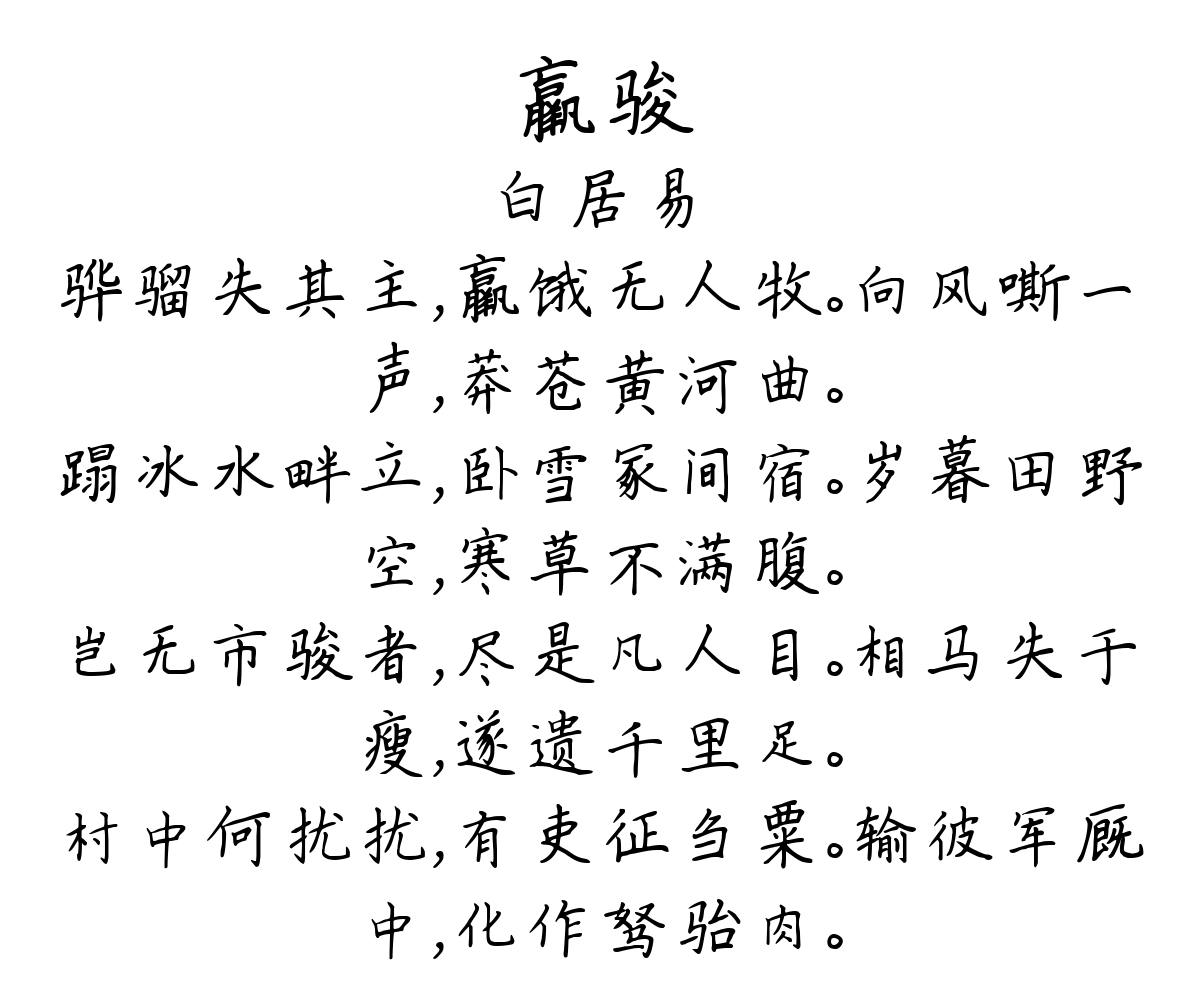 羸骏
白居易
骅骝失其主,羸饿无人牧。向风嘶一
声,莽苍黄河曲。
蹋冰水畔立,卧雪冢间宿。岁暮田野
空,寒草不满腹。
岂无市骏者,尽是凡人目。相马失于
瘦,遂遗千里足。
村中何扰扰,有吏征刍粟。输彼军厩
中,化作驽骀肉。